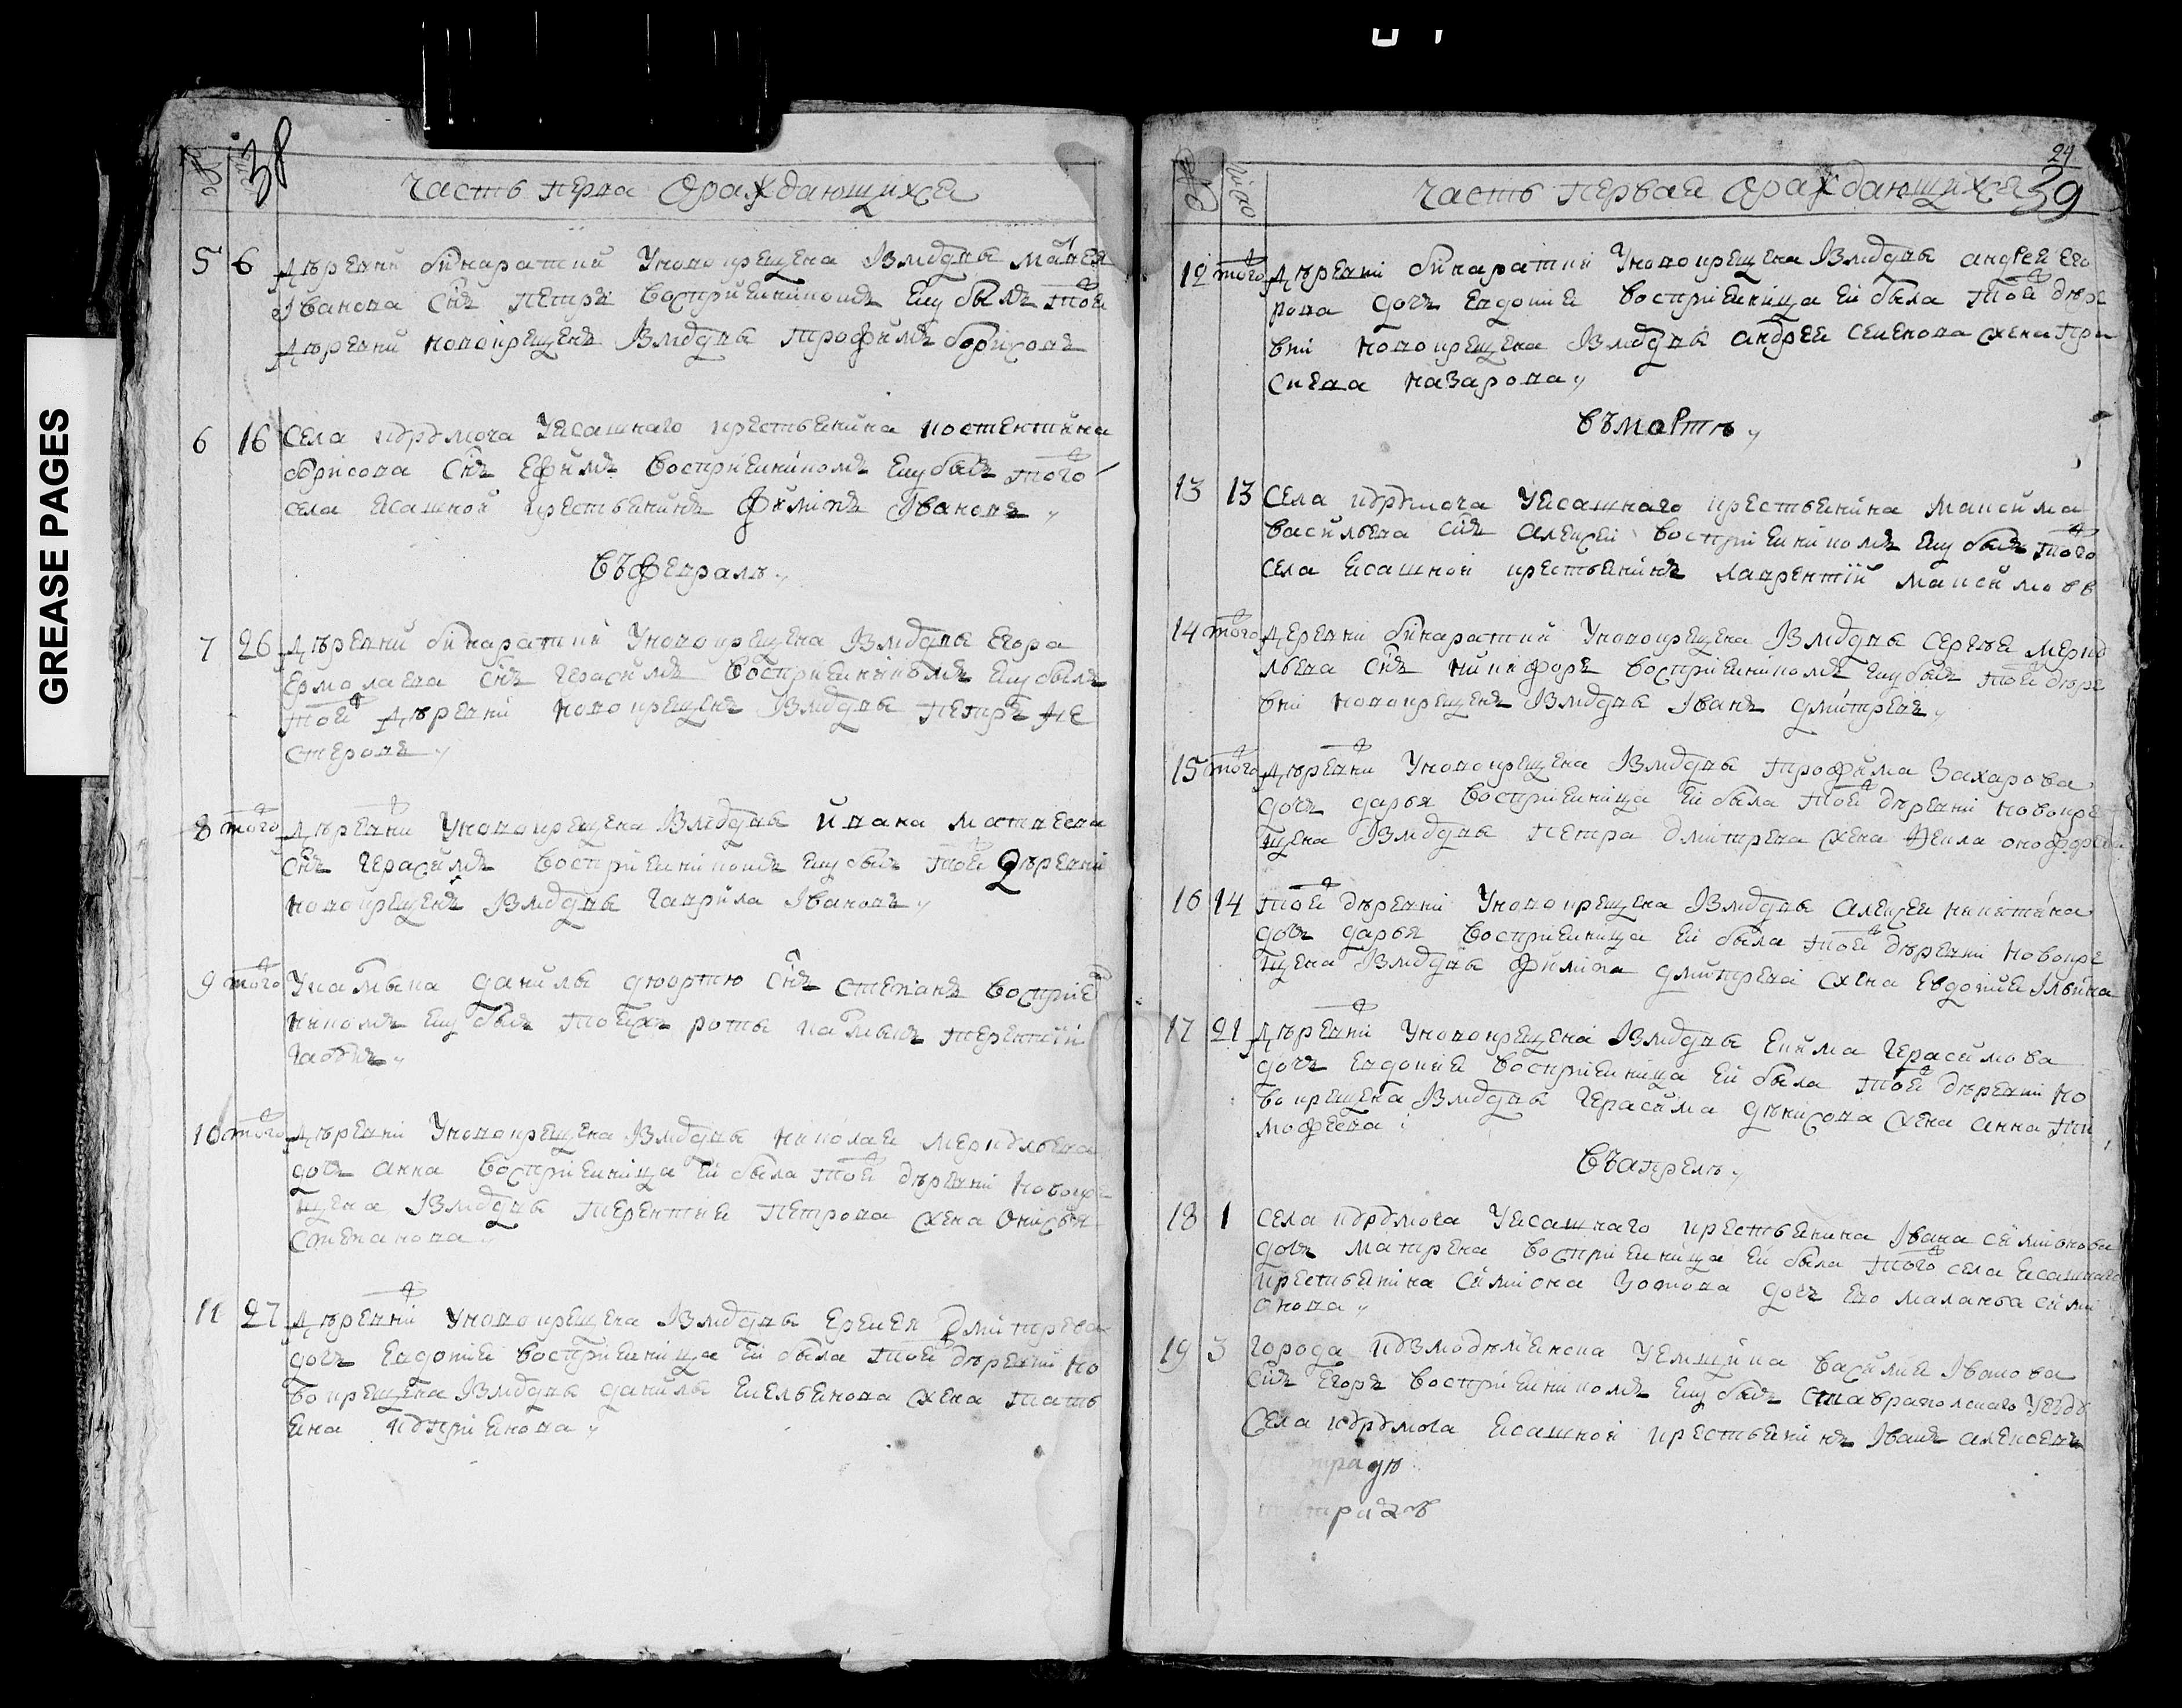 GREASE PAGES
38
часть перва ораждающихся
5 6 дѣревни бинаратки у новокрещена измодвы матвея
Iванова снъ петръ восприемникомъ ему былъ тои
дѣревни новокрещенъ измодвы трофимъ борисовъ
6 16 села кармола уясашнаго крестьянина костентина
борисова снъ ефимъ восприемникомъ ему былъ того
села ясашной крестьянинъ филипъ Iвановъ
въ февралѣ
7 26 дѣревни бинаратки у новокрещена измодвы егора
ермолаева снъ герасимъ восприемникомъ ему былъ
тои дѣревни новокрещенъ измодвы петръ не
стеровъ
8 того дѣревни у новокрещена измодвы ивана матвеева
снъ герасимъ восприемникомъ ему былъ тои дѣревни
новокрещенъ измодвы гаврила Iвановъ
9 того у калмыка данилы снъ степанъ восприе
никомъ ему былъ роты калмыкъ терентий
10 того дѣревни у новокрещена измодвы николая меркульева
дочь анна восприемница ей была тои дѣревни новокре
щена измодвы терентия петрова жена онисья
степанова
11 27 дѣревни у новокрещена измодвы еремея дмитрева
дочь евдокия восприемница ей была тои дѣревни но
вокрещена измодвы данилы емельянова жена тать
яна куприянова
24
39
число
часть первая ораждающихся
12 того дѣревни бинаратки у новокрещена измодвы андрея его
рова дочь евдокия восприемница ей была тои дѣре
вни новокрещена измодвы андрея семенова жена пра
сковя назарова
въ мартѣ
13 13 села кармола уясашнаго крестьянина максима
васильева снъ алексей восприемникомъ ему былъ того
села ясашной крестьянинъ лаврентий максимовъ
14 того деревни бинаратки у новокрещена измодвы сергея мерку
льева снъ никифоръ восприемникомъ ему былъ тои дѣре
вни новокрещенъ измодвы Iванъ дмитревъ
15 того дѣревни у новокрещена измодвы трофима захарова
дочь дарья восприемница ей была тои дѣревни новокре
щена измодвы петра дмитрева жена фекла
16 14 тои дѣревни у новокрещена измодвы алексея никитина
дочь дарья восприемница ей была тои дѣревни новокре
щена измодвы филипа дмитрева жена евдокия Iльина
17 21 дѣревни у новокрещена измодвы екима герасимова
дочь евдокия восприемница ей была тои дѣревни но
вокрещена измодвы герасима денисова жена анна ти
мофеева
въ апрелѣ
18 1 села кармола уясашнаго крестьянина Iвана симионова
дочь матрена восприемница ей была того села ясашнаго
крестьянина симиона дочь ево маланья сими
онова
19 3 города кузмодемьянска у ямщика василия Iванова
снъ егоръ восприемникомъ ему былъ ставрапольскаго уезду
села кармола ясашной крестьянинъ Iванъ алексеевъ